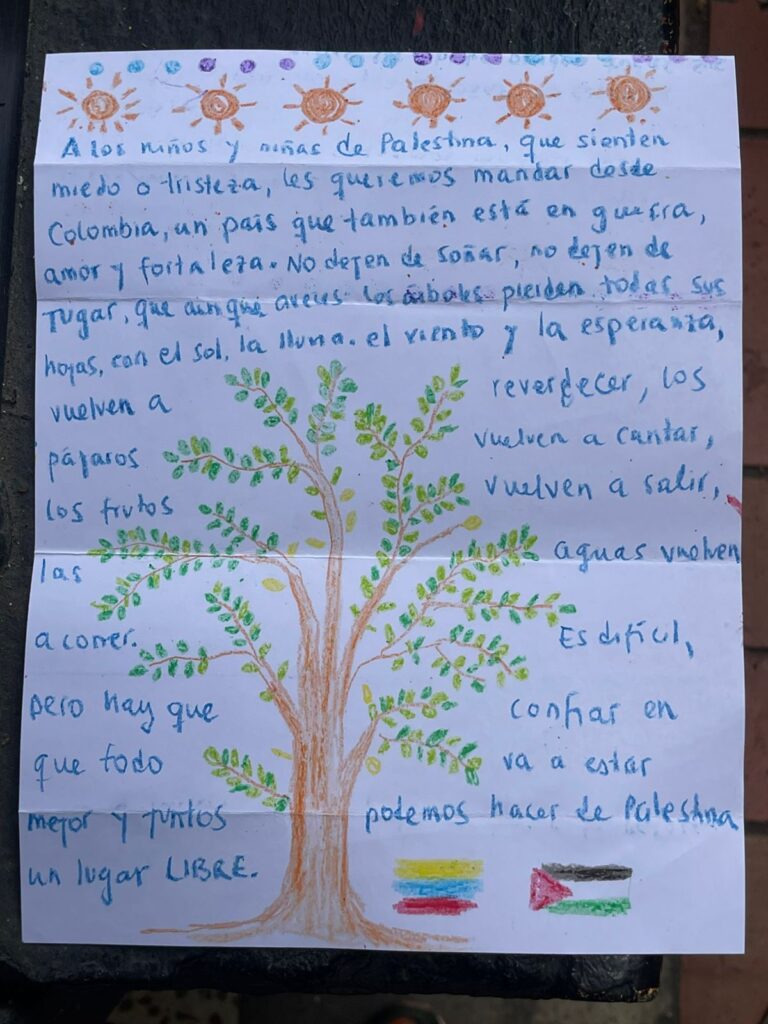 A los niños y niñas de Palestina, que sienten
miedo o tristeza, les queremos mandar desde
Colombia, un pais que también está en guerra,
amor y fortaleza. No dejen de soñar, no dejen de
jugar, que aunque aveces los árboles pierden todas sus
hojas, con el sol, la lluvia. el viento y la esperanza,
vuelven a reverdecer, los
pájaros vuelven a cantar,
los frutos vuelven a salir,
las aguas vuelven
a correr. Es difícil,
pero hay que confiar en
que todo va a estar
mejor y juntos podemos hacer de Palestina
un lugar LIBRE.